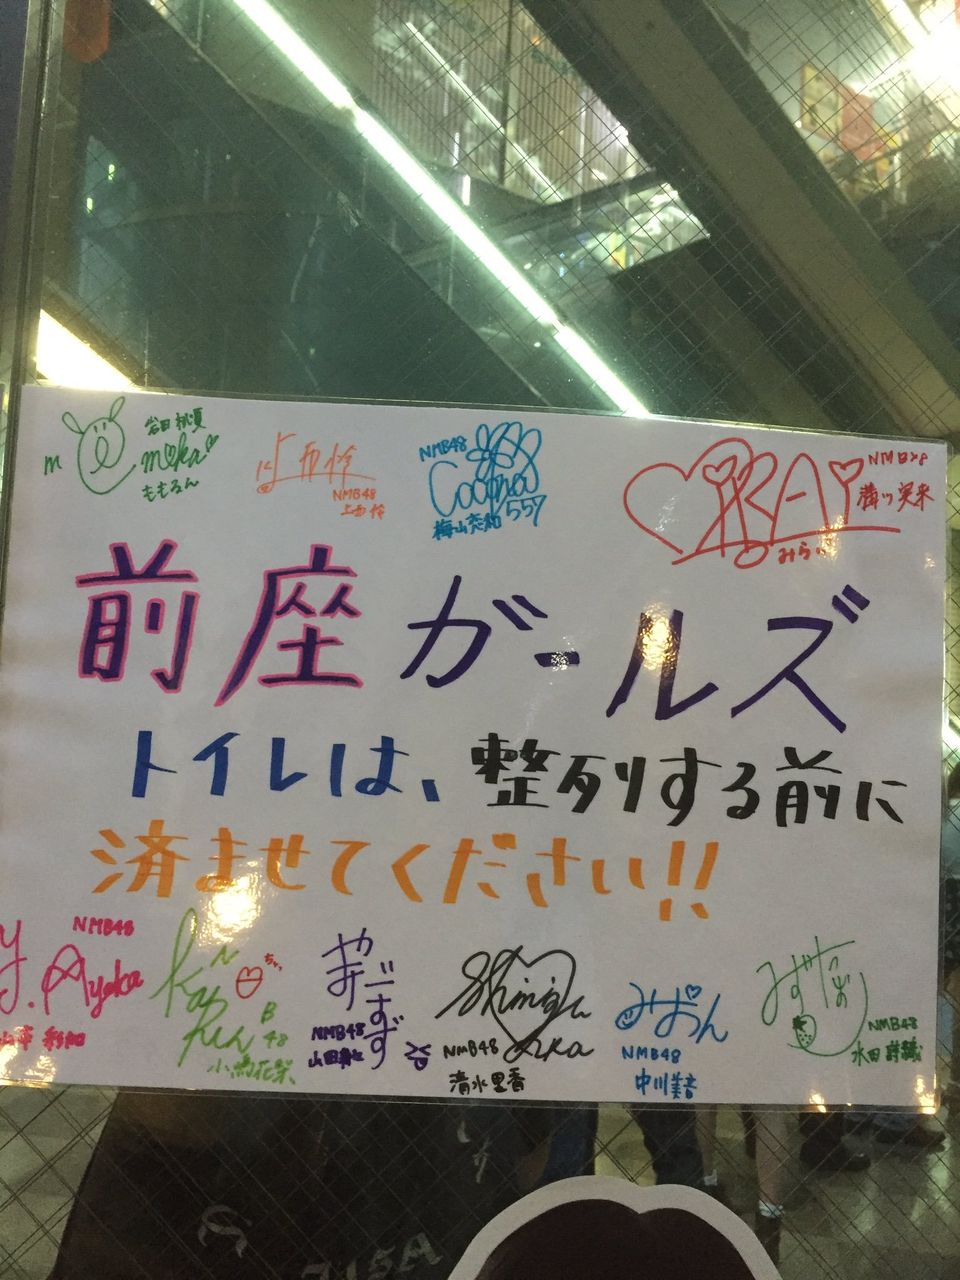 岩田桃夏
m moka
ももるん
上西怜
NMB48
上西怜
NMB48
Cocona
557
梅山恋和
NMB48
溝川実来
MIRAI
みらい
前座ガールズ
トイレは、整列する前に
済ませてください!!
NMB48
Y. Ayaka
山本 彩加
Karen
48
小嶋花梨
NMB48
山田寿々
Shimizu
Rika
NMB48
清水里香
みおん
NMB48
中川美音
NMB48
水田詩織